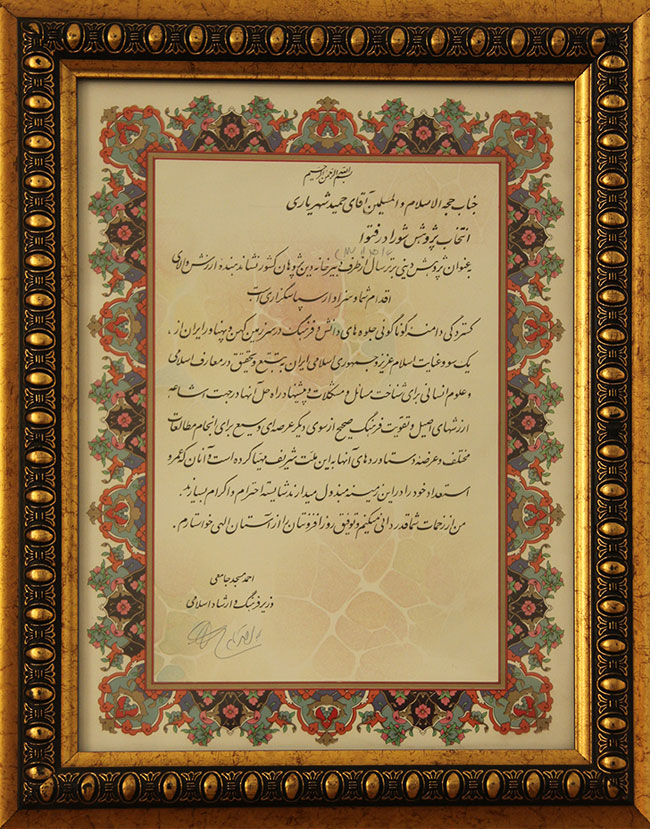 بسم الله الرحمن الرحیم
جناب حجة الاسلام و المسلمین آقای حمید شهریاری
انتخاب پژوهش شورا در فتوا
بعنوان پژوهش دینی برتر سال از طرف دبیرخانه دین پژوهان کشور نشاندهنده ارزش والای
اقدام شما و سزاوار سپاسگزاری است
گستردگی دامنه گوناگونی جلوه های دانش و فرهنگ در سرزمین کهن و پهناور ایران از
یک سو و عنایت اسلام عزیز و جمهوری اسلامی ایران به تتبع و تحقیق در معارف اسلامی
و علوم انسانی برای شناخت مسائل و مشکلات و پیشنهاد راه حل آنها در جهت اشاعه
ارزشهای اصیل و تقویت فرهنگ صحیح از سوی دیگر عرصه ای وسیع برای انجام مطالعات
مختلف و عرضه دستاوردهای آنها به این ملت شریف مهیا کرده است و آنان که عمر و
استعداد خود را در این زمینه مبذول میدارند شایسته احترام و اکرام بسیارند.
من از زحمات شما قدردانی میکنم و توفیق روزافزونتان را از آستان الهی خواستارم.
احمد مسجد جامعی
وزیر فرهنگ و ارشاد اسلامی